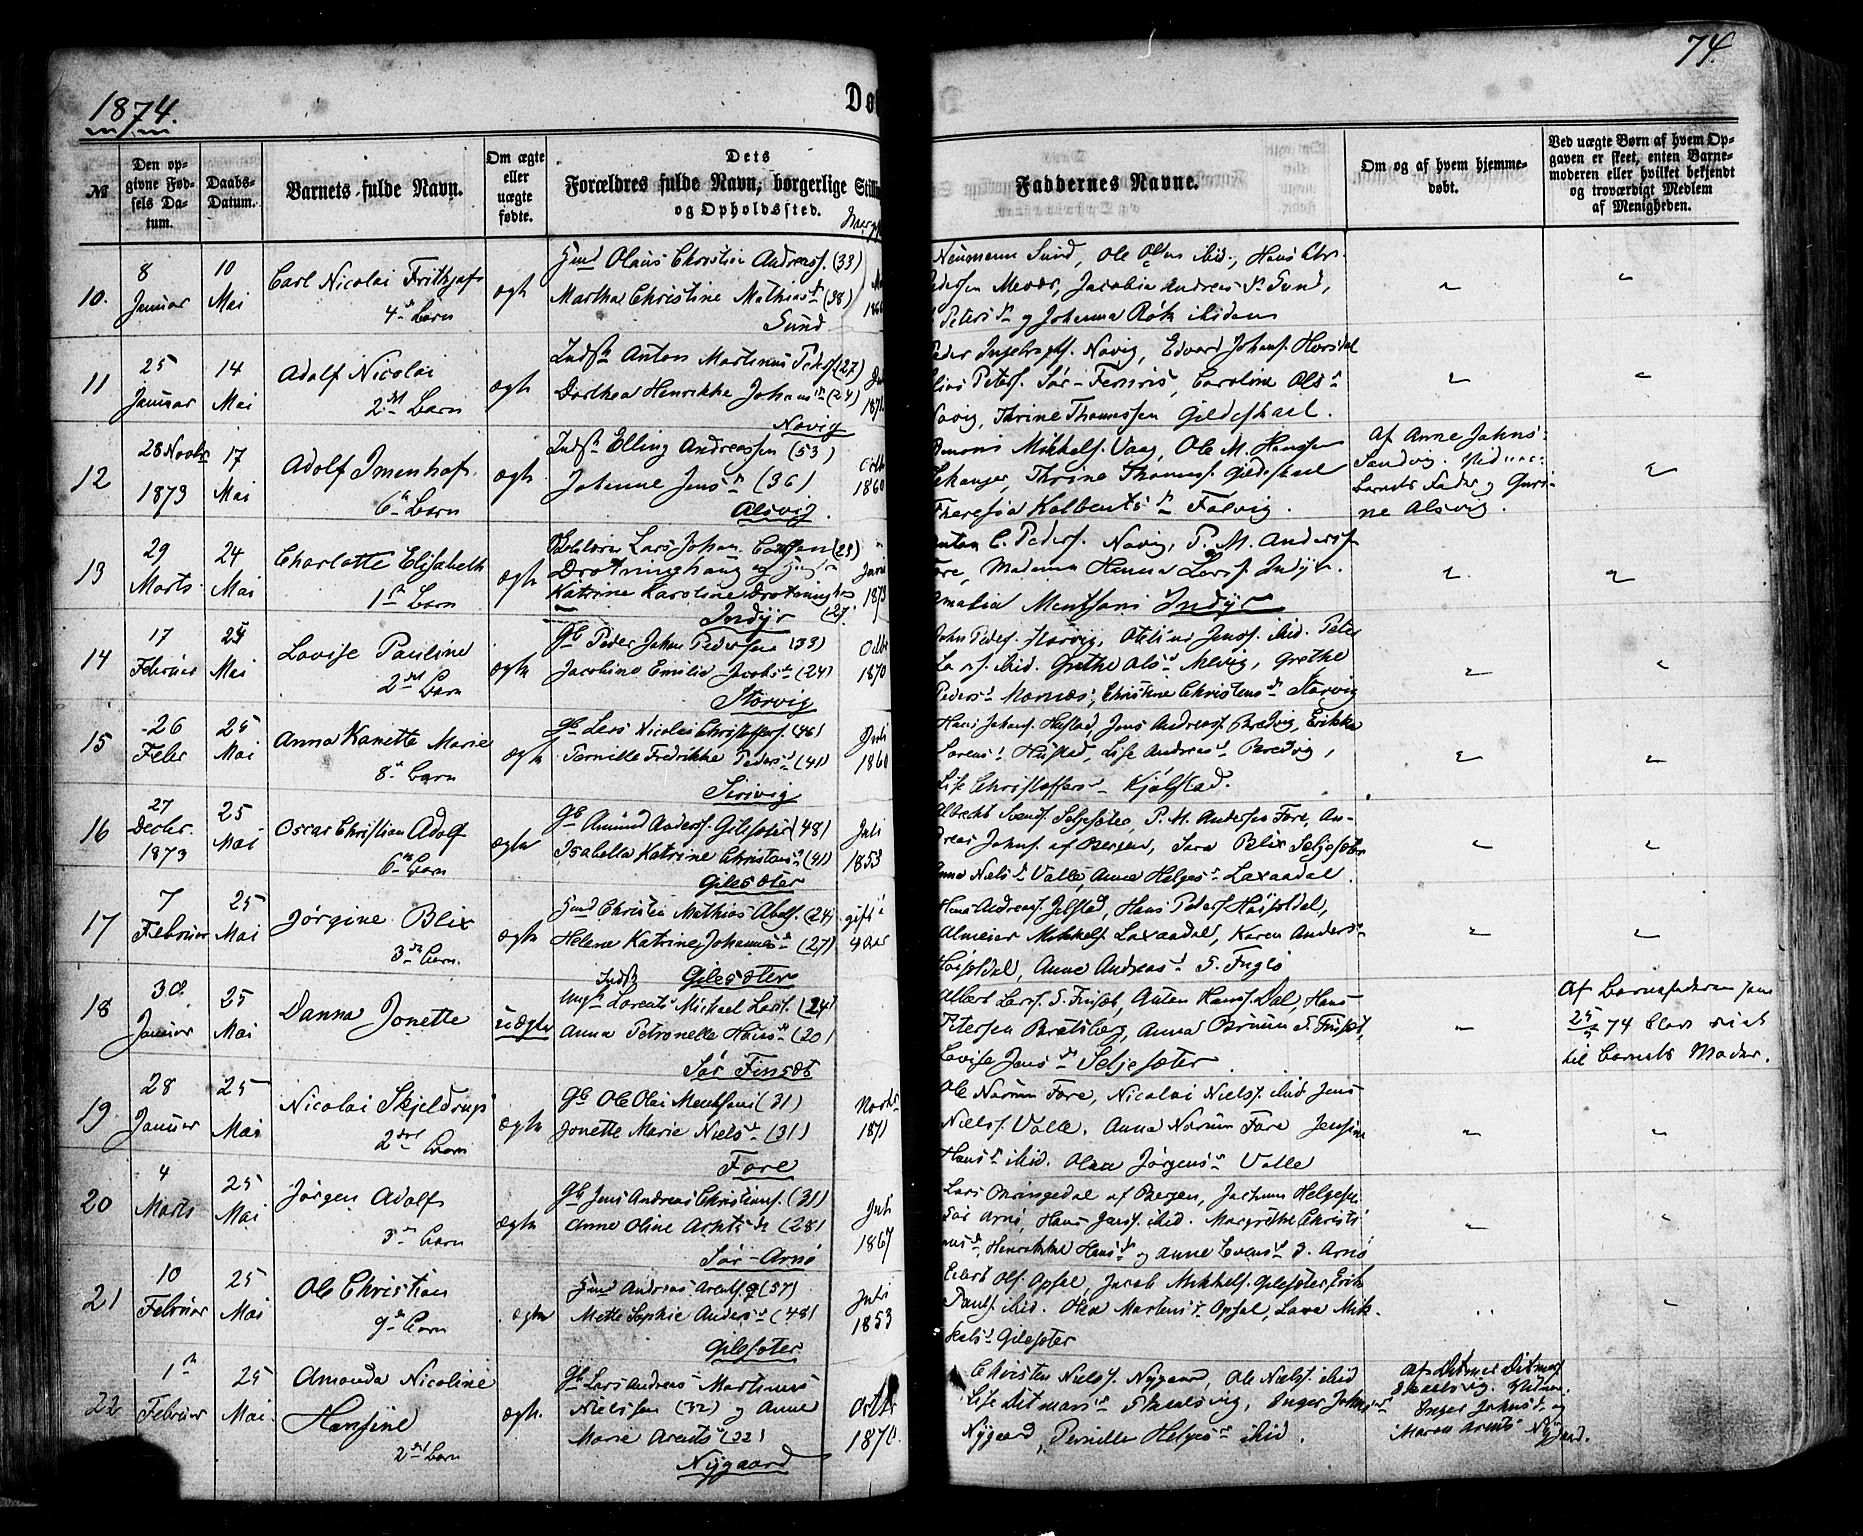 74.
1874.
Dø
№
Den op-
givne Fød-
sels Da-
tum.
Daabs-
Datum.
Barnets fulde Navn.
Om ægte
eller
uægte
fødte.
Dets
Forældres fulde Navn, borgerlige Stillin
og Opholdssted.
Faddernes Navne.
Om og af hvem hjemme-
døbt.
Ved uægte Børn af hvem Op-
gaven er skeet, enten Barne-
moderen eller hvilket bekjendt
og troværdigt Medlem
af Menigheden.
10.
8
Januar
10
Mai
Carl Nicolai Frithjof
4de Barn
ægte
Olaus Christian Andreass. (33)
Martha Christine Mathiasd. (38)
Sund
Neumann Sund, Ole Olsen ibid., Hans Chr.
Pedersen Jacobia Andreas Sund,
Peters og Johanna Røk ibidem
11
25
Januar
14
Mai
Adolf Nicolai
2det Barn
ægte
Inds. Anton Martinus Peders. (27)
Dorthea Henrikke Johansd. (24)
Novig
Peder Novig, Edvard Johans. Horsdal
Elias Peters. Sør-Fornæs, Caroline Ols
Novig, Thrine Thomassen Gildeskaal.
12
28 Novbr
1873
17
Mai
Adolf Imenhof
6te Barn
ægte
Inds. Elling Andreassen (53)
Johanne Jensd. (36)
Alsvig.
Octb
1860
Simons Mikkels. Vaag, Ole M. Hanssen
Thrine Thomass. Gildeskaal
Theresia Kolbents Falvig.
Af Anne Johns
Sandvig. Vidne:
Barnets Fader og Guri-
ne Alsvig.
13
29
Marts
24
Mai
Charlotte Elisabeth
1ste Barn
ægte
Lars Johan (23)
Drotninghaug og
Katrine Karoline Drotningh
Indyr (27.
Juni
1873
Anton C. Peders. Novig, P. M. Anders.
Fore, Madame Hanna Lars. Indyr.
Amalia Mentsoni Indyr
14
17
Februar
25
Mai
Lovise Pauline
2det Barn
ægte
Gb Peder Johan Pedersen (33)
Jacobine Emilie Jacobsd. (24)
Storvig
Octb
1870
John Peders. Storvig, Otelius Jenss. ibid. Peter
Lars. ibid. Grethe Olsd. Melvig, Grethe
Pedersd. Mornæs, Christine Christensd. Storvig
15
26
Febr
25
Mai
Anna Kanette Marie
8de Barn
ægte
Gb Lars Nicolai Christoffers. (46)
Pernille Fredrikke Pedersd. (41)
Sørvig
Juli
1860
Hans Johans. Hustad, Jens Andreass. Bredvig, Erikka
Lorensd. Hustad, Lise Andreasd. Bredvig,
Lise Christoffersd. Kjølstad.
16
27
Decbr.
1873
25
Mai
Oscar Christian Adolf
6te Barn
ægte
Gb Amund Anderss. Gilesøter (48)
Isabella Katrine Christensd. (41)
Gilesøter
Juli
1853
Albrecht Svends. Seljesøter, P. M. Anderson Fore, An-
dreas Johns. af Bergen, Sara Blix Seljesøter
Anna Nielsd. Valle, Anna Helgesd. Laxaadal.
17
7
Februar
25
Mai
Jørgine Blix
3de Barn.
ægte
Christen Mathias Abels. (24)
Helena Katrine Johannesd. (27)
Gilesøter
gift i
4 Aar
Hans Andreass. Jelstad, Hans Peders. Høisdal,
Almeier Mikkels. Laxaadal, Karen Anders
Høisdal, Anne Andreasd. S. Fugø
18
30
Januar
25
Mai
Danna Jonette
uægte
Inds.
Ungk. Lorents Michael Lars. (24)
Anna Petronelle Hansd. (20)
Sør Finsæt
Albert Lars. S. Finsæt, Anton Hans. Dal, Hans
Petersen Bratsberg, Anna S. Finsæt,
Lovise Jensd. Seljesøter
Af Barnefaderen som
25/5 74 blev viet
til Barnets Moder.
19
28
Januar
25
Mai
Nicolai Skjeldrup
2det Barn
ægte
Gb Ole Olai Mentsoni (31)
Jonette Marie Nielsd. (31)
Fore
Novbr
1871
Ole Norum Fore, Nicolai Niels. ibid. Jens
Niels. Valle. Anna Norum Fore Jensine
Hansd. ibid. Olma Jørgensd. Valle
20
4
Marts
25
Mai
Jørgen Adolf
3de Barn
ægte
Gb Jens Andreas Christians. (31)
Anne Oline Arntsd. (28)
Sør-Arnø
Juli
1867
Lars af Bergen, Jochum Helgesen
Sør Arnø, Hans Jenss. ibid. Margrethe Christi
ansd. Henrikke Hansd. og Anne Evensd. S. Arnø
21
10
Februar
25
Mai
Ole Christian
9de Barn
ægte
Andreas Arents. (57)
Mette Sophie Andersd. (48)
Gilesøter
Juli
1853
Evert Ols. Opsal, Jacob Mikkels. Gilesøter, Erik
Pauls. ibid. Olea Martensd. Opsal, Lava Mik-
kelsd. Gilesøter
22
1ste
Februar
25
Mai
Amanda Nicoline
Hansine
2det Barn
ægte.
Gb Lars Andreas Martinus
Nielssen (32) og Anne
Marie Arentsd. (32)
Nygaard
Octbr
1870.
Christen Niels. Nygaard, Ole Niels. ibid
Lise Ditmarsd. Skaalsvig, Inger Johnsd.
Nygaard, Pernille Helgesd. ibid.
Af Ditmer Ditmars.
Skaalsvig. Vidne.
Inger Johnsd. og
Maren Arnts Nygaard.